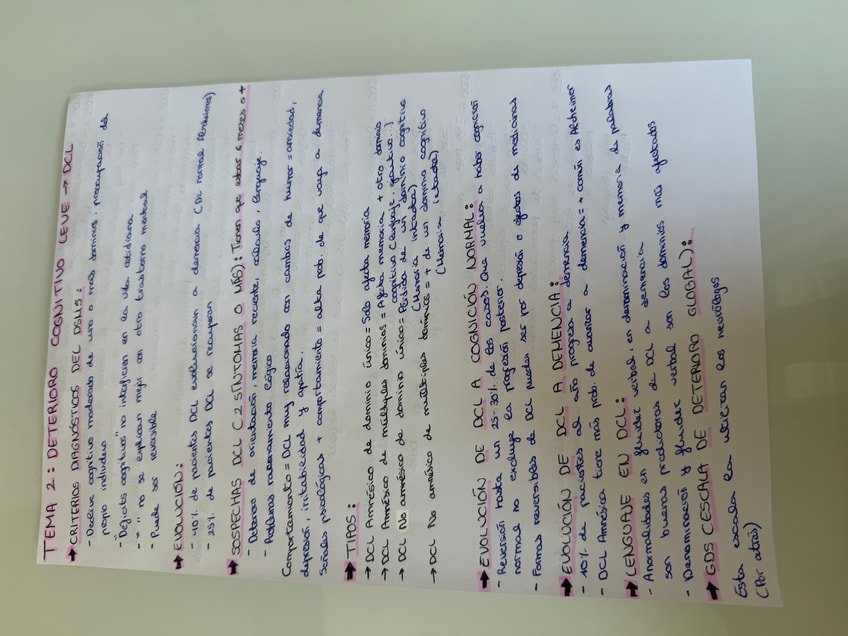 TEMA 2: DETERIORO COGNITIVO LEVE → DCL
→ CRITERIOS DIAGNÓSTICOS DEL DSM5:
- Declive cognitivo moderado de uno o más dominios, preocupación del
propio individuo
- "Déficits cognitivos" no interfieren en la vida cotidiana
- " " no se explican mejor con otro trastorno mental
- Puede ser reversible
→ EVOLUCIÓN:
- 40% de pacientes DCL evolucionan a demencia (De normal Alzheimer)
- 25% de pacientes DCL se recuperan
→ SOSPECHAS DCL (2 SÍNTOMAS O MÁS): Tienen que estar 6 meses o +
- Deterioro de orientación, memoria reciente, cálculo, lenguaje.
- Problemas razonamiento lógico
Comportamiento = DCL muy relacionado con cambios de humor = ansiedad,
depresión, irritabilidad y apatía.
Señales psicológicas + comportamiento = alta prob. de que vaya a demencia
→ TIPOS:
→ DCL Amnésico de dominio único = Solo afecta memoria
→ DCL Amnésico de múltiples dominios = Afecta memoria + otro dominio
cognitivo (lenguaje, ejecutivo...)
→ DCL No amnésico de dominio único = Pérdida de un dominio cognitivo
(Memoria intactea)
→ DCL No amnésico de múltiples dominios = + de un dominio cognitivo
(Memoria intacta)
→ EVOLUCIÓN DE DCL A COGNICIÓN NORMAL:
- Reversión hasta un 25-30% de los casos. Que vuelva a haber cognición
normal no excluye la progresión posterior.
- Formas reversibles de DCL pueden ser por depresión o efectos de medicinas
→ EVOLUCIÓN DE DCL A DEMENCIA:
- 10% de pacientes al año progresa a demencia
- DCL Amnésica tiene más prob. de avanzar a demencia = + común es Alzheimer
→ LENGUAJE EN DCL:
- Anormalidades en fluidez verbal, en denominación y memoria de palabras
son buenas predictoras de DCL a demencia
- Denominación y fluidez verbal son los dominios más afectados
→ GDS (ESCALA DE DETERIORO GLOBAL):
Esta escala la utilizan los neurólogos
(Por atrás)